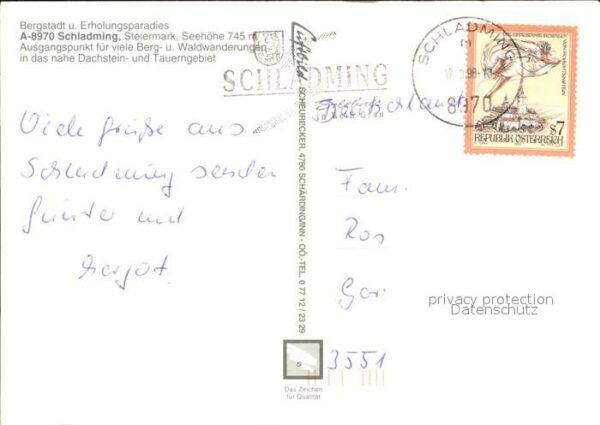 Bergstadt u. Erholungsparadies
A-8970 Schladming, Steiermark, Seehöhe 745 m
Ausgangspunkt für viele Berg- u. Waldwanderungen
in das nahe Dachstein- und Tauerngebiet
Viele Grüße aus
Schladming senden
Günter und
Margot.
Luftbild
SCHEURECKER, 4780 SCHÄRDING/INN - OÖ.-TEL. 0 77 12 / 23 29
SCHLADMING
SCHLADMING
8970
S7
REPUBLIK ÖSTERREICH
Deutschland
Fam.
Ros
Gar
3551
privacy protection
Datenschutz
Das Zeichen
für Qualität